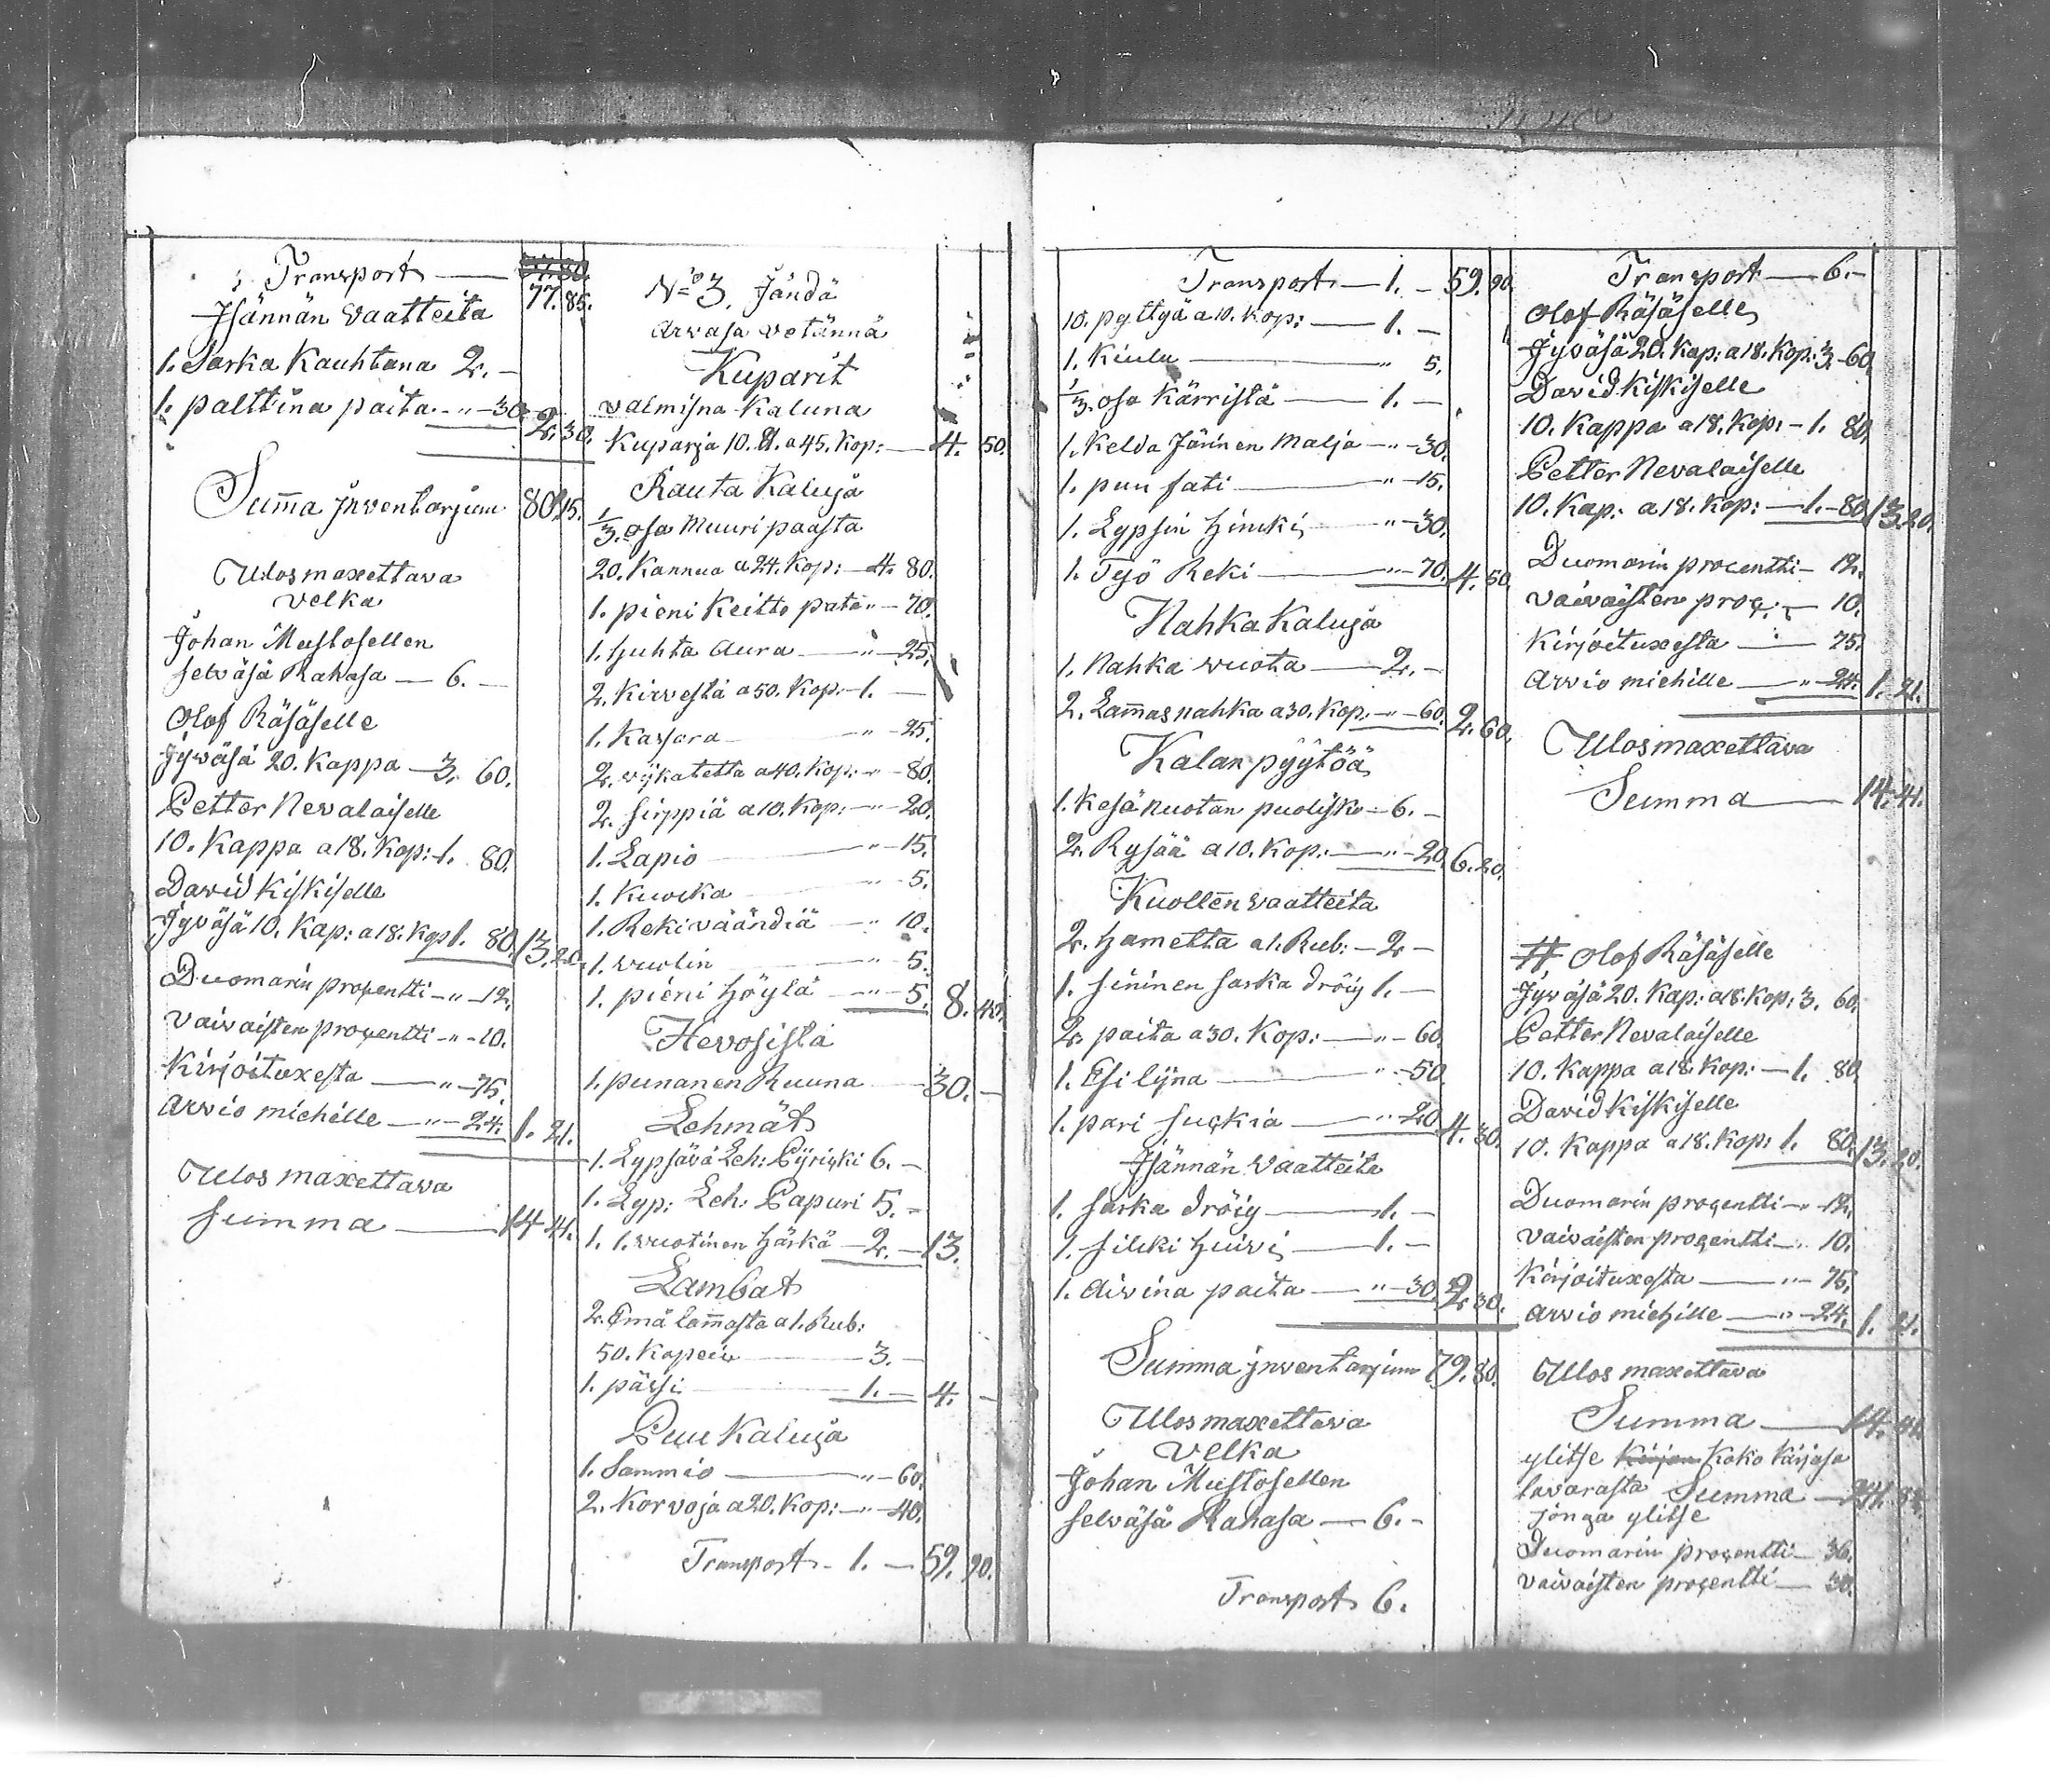 Transport
77. 85.
Isännän Vaatteita
1. Sarka Kauhtana 2. —
1. palttina paita - " - 30. 2. 30.
Summa jnventarjum 80. 15.
Ulosmaxettava
velka
Johan Mustosellen
selväsä Rahasa — 6. —
Olof Räsäselle
Jyväsä 20. Kappa — 3. 60.
Petter Nevalaiselle
10. Kappa a 18. Kop: 1. 80.
David Kiskiselle
Jyväsä 10. Kap: a 18. Kop 1. 80. 13. 20.
Duomarin procentti - " - 12.
Vaivaisten procentti - " - 10.
Kirjoituxesta — " - 75.
Arvio miehille — " - 24. 1. 21.
Ulos maxettava
summa — 14. 41.
No 3. Jändä
arvasa vetännä
Kuparit
valmisna Kaluna
Kuparja 10. ℔. a 45. Kop: — 4. 50.
Rauta Kaluja
1/3. osa Muuri paasta
20. Kannua a 24. Kop: — 4. 80.
1. pieni Keitto pata " — 70.
1. huhta Aura — " — 25.
2. Kirvestä a 50. Kop: - 1. —
1. Kassara — " — 25.
2. vijkatetta a 40. Kop: — " — 80.
2. sirppiä a 10. Kop: — " — 20.
1. Lapio — " — 15.
1. Kuocka — " — 5.
1. Rekiväändiä — " 10.
1. vuolin — " — 5.
1. pieni höylä — " — 5. 8. 40.
Hevosista
1. punanen Ruuna — 30. —
Lehmät
1. Lypsävä Leh: Pijricki 6. —
1. Lyp: Leh: Papuri 5. —
1. 1. vuotinen härkä — 2. — 13.
Lambat
2. Emä lam̄asta a 1. Rub:
50. Kopeiu — 3. —
1. pässi — 1. — 4. —
Puu Kaluja
1. Sammio — " — 60.
2. Korvoja a 20. Kop: — " — 40.
Transport - 1. — 59. 90.
Transport — 1. — 59. 90.
10. pyttyä a 10. Kop: — 1. —
1. Kiulu — " 5.
1/3. osa Kärristä — 1. —
1. Kelda Jäninen Malja — " — 30.
1. puu fati — " — 15.
1. Lypsin hincki — " — 30.
1. Työ Reki — " — 70. 4. 50.
Nahka Kaluja
1. Nahka vuota — 2. —
2. Lam̄asnahka a 30. Kop. — " — 60. 2. 60.
Kalan pyytöä
1. Kesä nuotan puolisko — 6. —
2. Rysää a 10. Kop: — " — 20. 6. 20.
Kuollen vaatteita
2. hametta a 1. Rub: — 2 —
1. sininen sarka dröiy 1. —
2. paita a 30. Kop: — " — 60.
1. Esilijna — " — 50.
1. pari suckia — " — 20. 4. 30.
Isännän Vaatteita
1. sarka dröiy — 1. —
1. silcki huivi — 1. —
1. Aivina paita — " — 30. 2. 30.
Summa jnventarjum 79. 80.
Ulosmaxettava
velka
Johan Mustosellen
selväsä Rahasa — 6. —
Transport 6.
Transport — 6. —
Olof Räsäselle
Jyväsä 20. Kap: a 18. Kop: 3. 60.
David Kiskiselle
10. Kappa a 18. Kop: — 1. 80.
Petter Nevalaiselle
10. Kap: a 18. Kop: — 1. — 80. 13. 20.
Duomarin procentti — 12.
vaivaisten proc: — 10.
Kirjoituxesta — 75.
Arvio miehille — " — 24. 1. 21.
Ulosmaxettava
Summa — 14. 41.
# Olof Räsäselle
Jyväsä 20. Kap: a 18. Kop: 3. 60.
Petter Nevalaiselle
10. Kappa a 18. Kop: — 1. 80.
David Kiskiselle
10. Kappa a 18. Kop: 1. 80. 13. 20.
Duomarin procentti — " — 12.
vaivaisten procentti — " 10.
Kirjoituxesta — " — 75.
arvio miehille — " — 24. 1. 21.
Ulos maxettava
Summa — 14. 41.
ylitse Kirjan Koko Kirjasa
tavarasta Summa
jonga ylitse
Duomarin procentti — 36.
vaivaisten procentti — 30.